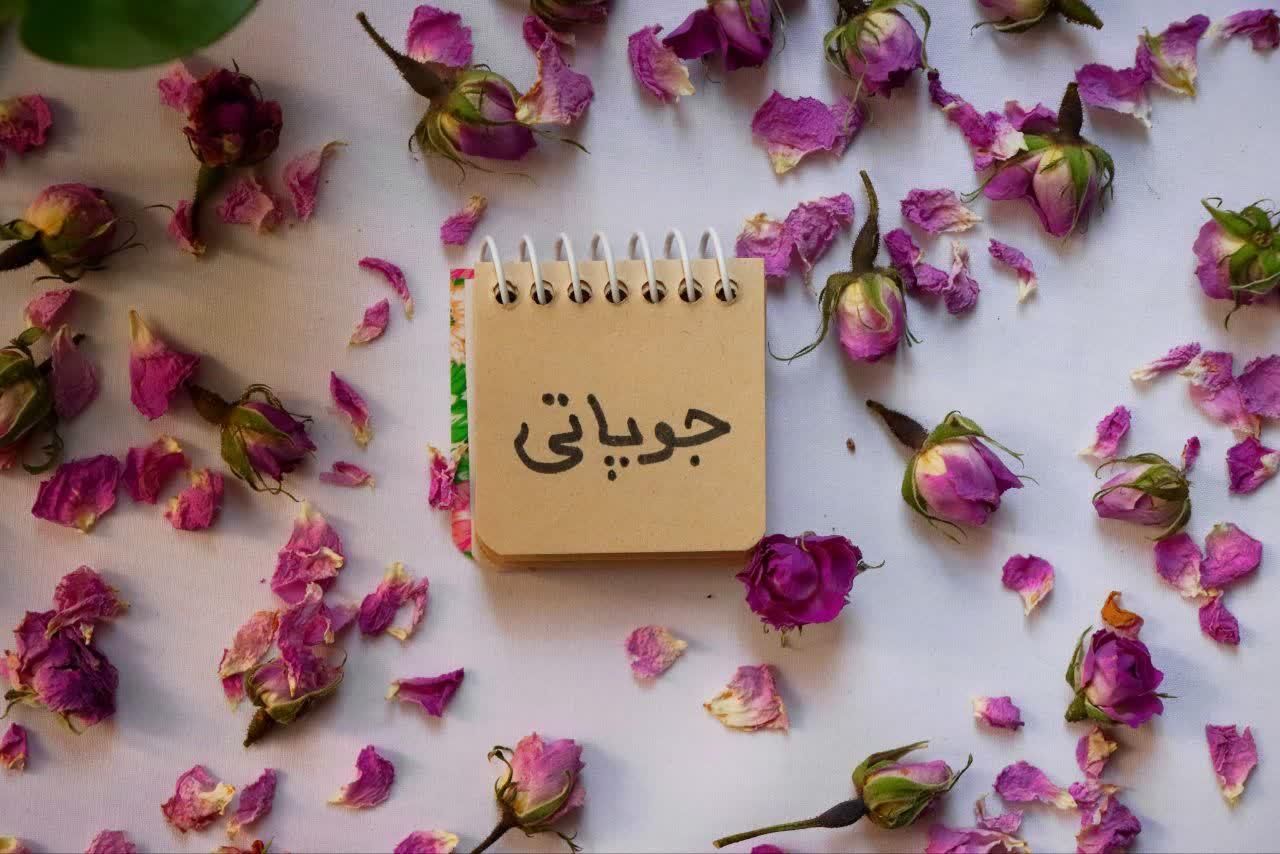 جوپاتی